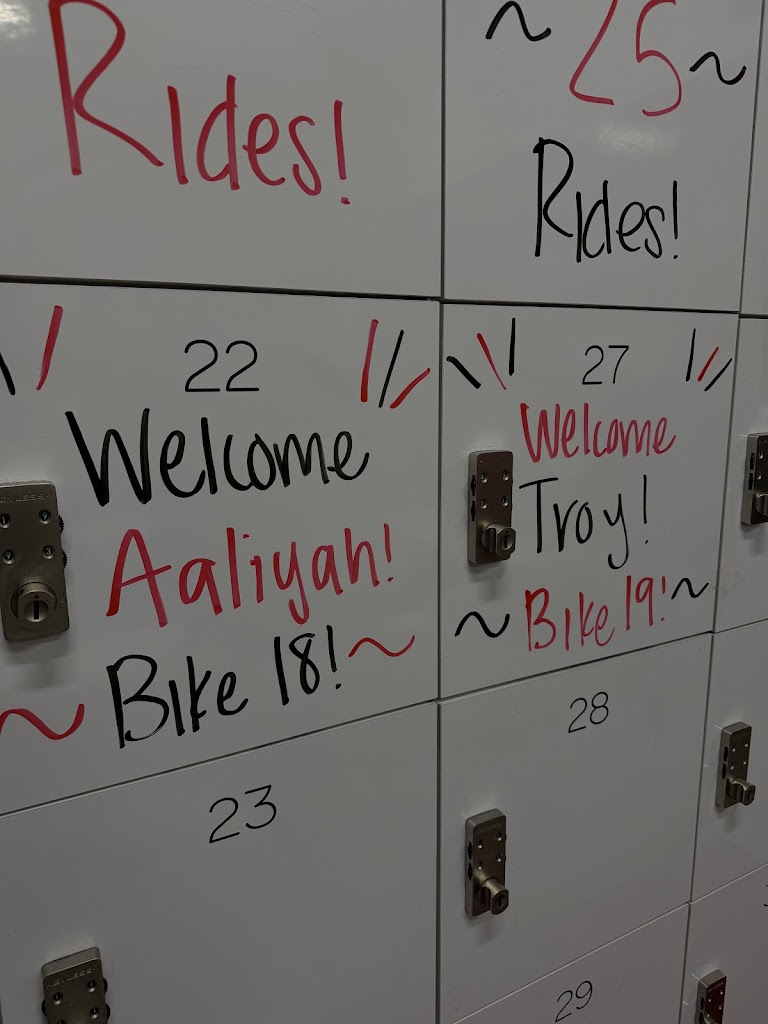 Rides!
~ 25 ~
Rides!
22
Welcome
Aaliyah!
~ Bike 18! ~
27
Welcome
Troy!
~ Bike 19! ~
23
28
29